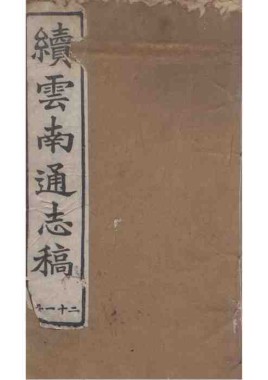 續雲南通志稿
二十一